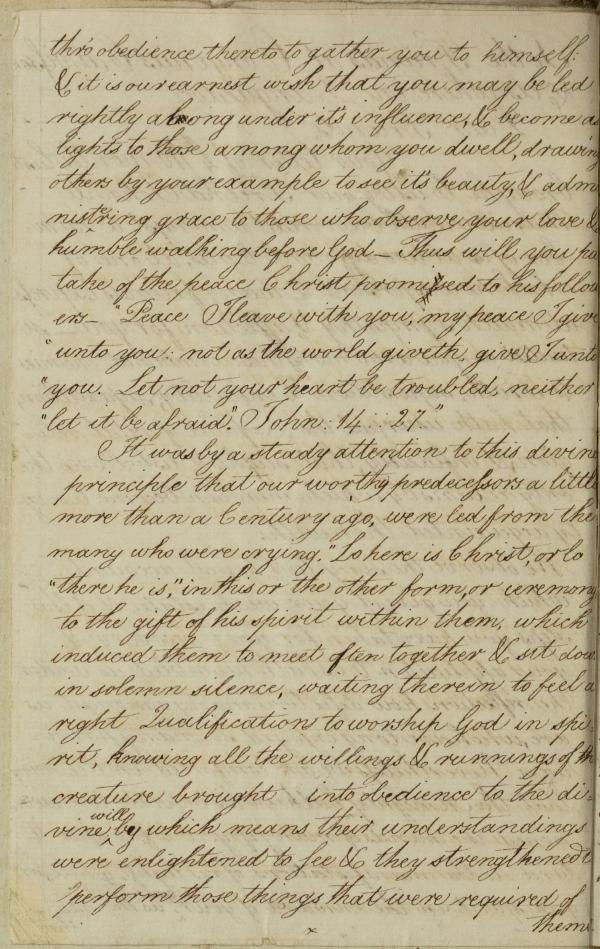 thro' obedience thereto to gather you to himself:
& it is our earnest wish that you may be led
rightly along under it's influence, & become as
lights to those among whom you dwell, drawing
others by your example to see it's beauty, & admi
nist'ring grace to those who observe your love &
humble walking before God_ Thus will you pa
take of the peace Christ promised to his follow
ers_ "Peace I leave with you, my peace I give
"unto you: not as the world giveth, give I unto
"you. Let not your heart be troubled, neither
"let it be afraid". John: 14 : 27."
It was by a steady attention to this divine
principle that our worthy predecessors a little
more than a Century ago, were led from the
many who were crying, "Lo here is Christ, or lo
"there he is", in this or the other form, or ceremony
to the gift of his spirit within them, which
induced them to meet often together & sit down
in solemn silence, waiting therein to feel a
right Qualification to worship God in spi-
rit, knowing all the willings & runnings of the
creature brought into obedience to the di-
vine will, by which means their understandings
were enlightened to see & they strengthened to
perform those things that were required of
them
x